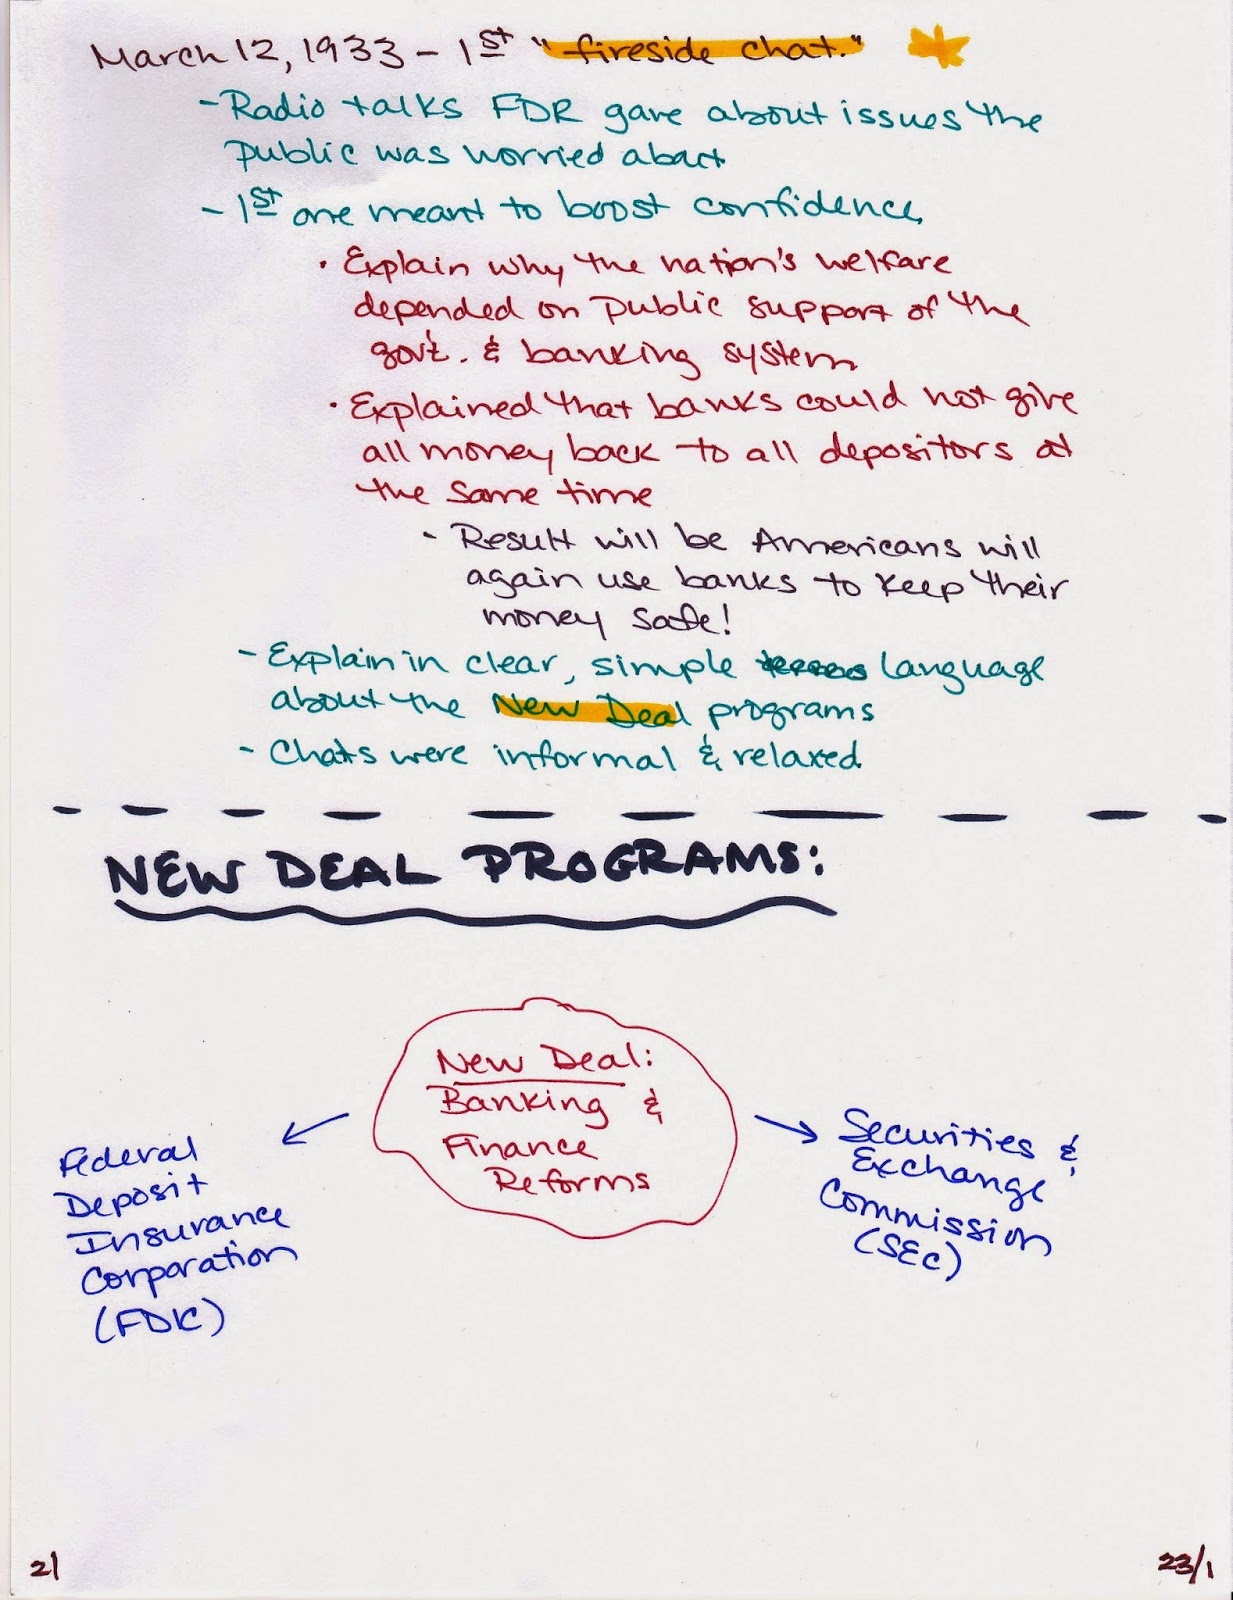 March 12, 1933 - 1st "fireside chat."
- Radio talks FDR gave about issues the
public was worried about
- 1st one meant to boost confidence
• Explain why the nation's welfare
depended on public support of the
gov't. & banking system
• Explained that banks could not give
all money back to all depositors at
the same time
- Result will be Americans will
again use banks to keep their
money safe!
- Explain in clear, simple language
about the New Deal programs
- Chats were informal & relaxed
NEW DEAL PROGRAMS:
New Deal:
Banking &
Finance
Reforms
Federal
Deposit
Insurance
Corporation
(FDIC)
Securities &
Exchange
Commission
(SEC)
2/
23/1